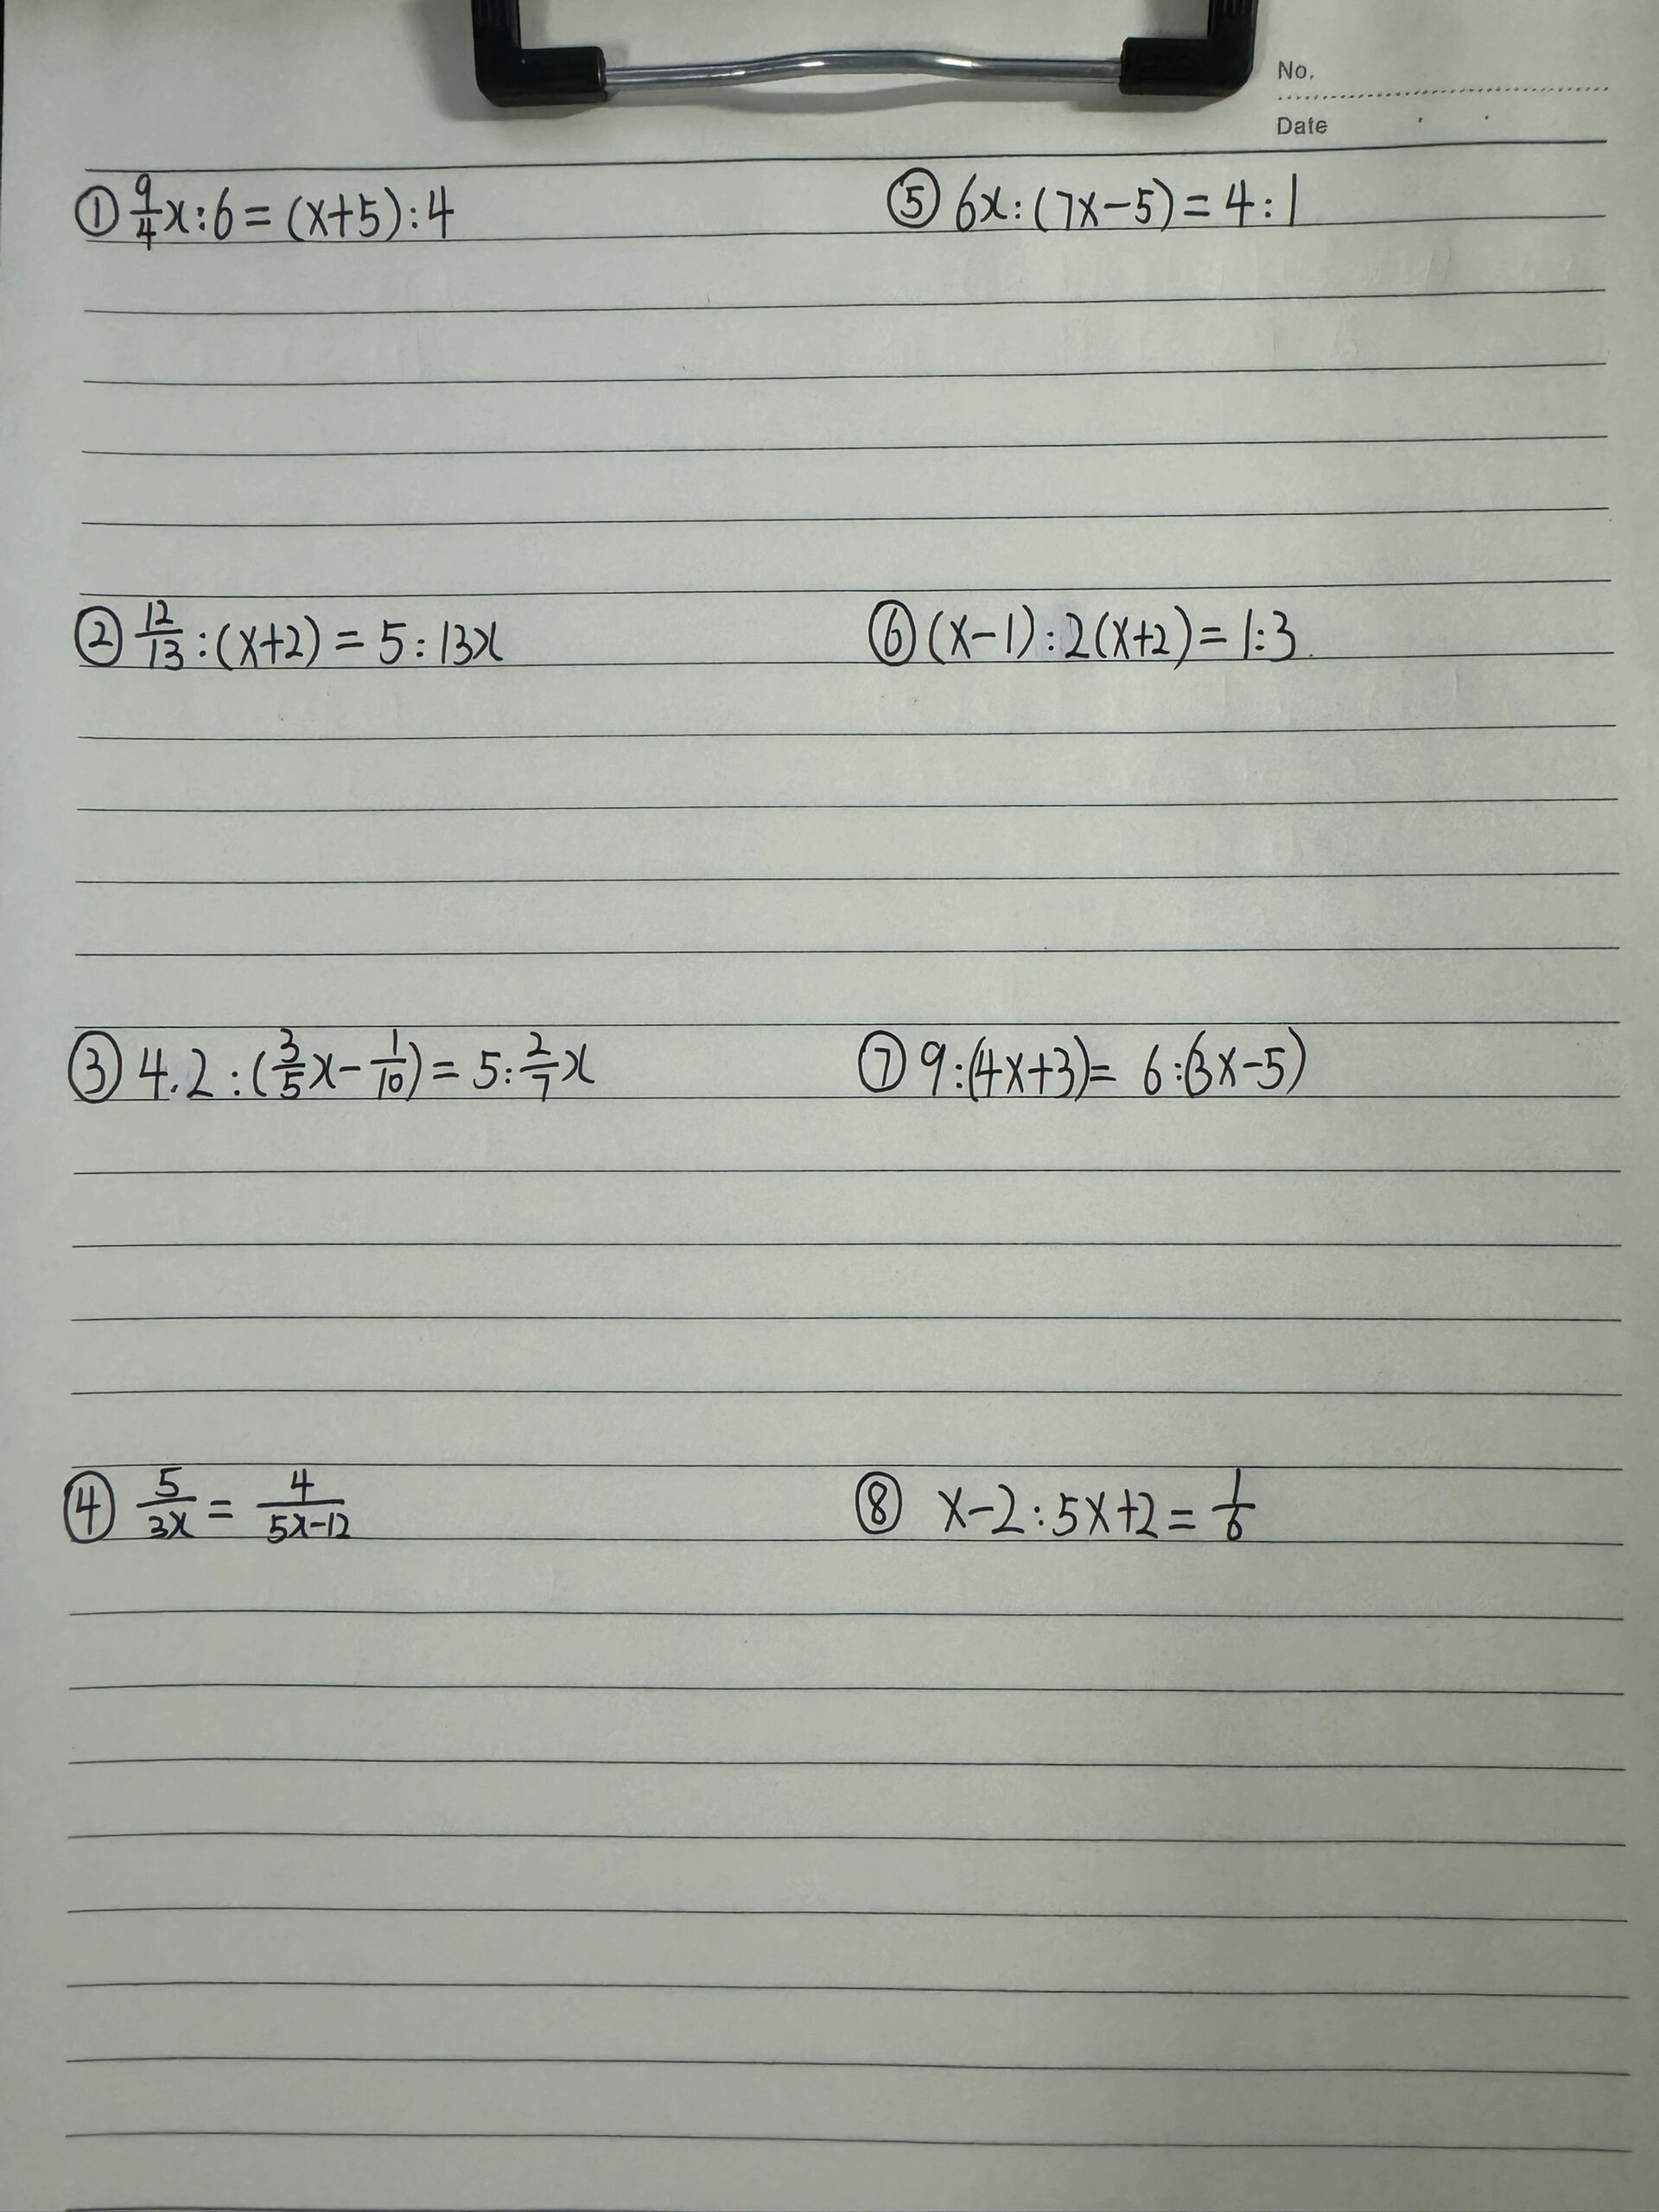 No.
Date
① 9/4 x:6=(x+5):4
② 12/13:(x+2)=5:13x
③ 4.2:(3/5 x-1/10)=5:2/7 x
④ 5/3x=4/5x-12
⑤ 6x:(7x-5)=4:1
⑥ (x-1):2(x+2)=1:3
⑦ 9:(4x+3)=6:(3x-5)
⑧ x-2:5x+2=1/6